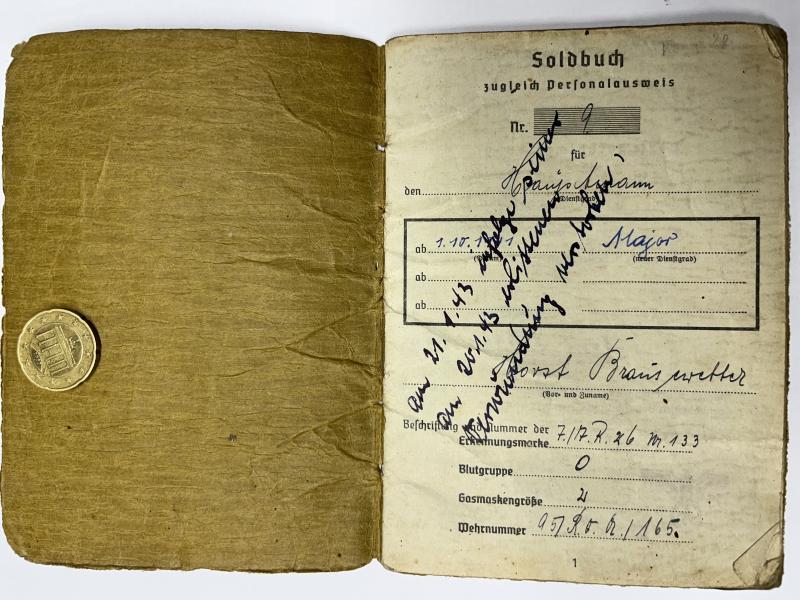 Soldbuch
zugleich Personalausweis
Nr. 9
für
den Hauptmann
(Dienstgrad)
ab 1.10.1941 Major
(Datum) (neuer Dienstgrad)
ab
ab
Horst Brausewetter
(Vor- und Zuname)
Beschriftung und Nummer der
Erkennungsmarke 7/A.R. 26 Nr. 133
Blutgruppe O
Gasmaskengröße 2
Wehrnummer 165.
1
am 21.1.43 infolge seiner
am 20.1.43 erlittenen
Verwundung verstorben